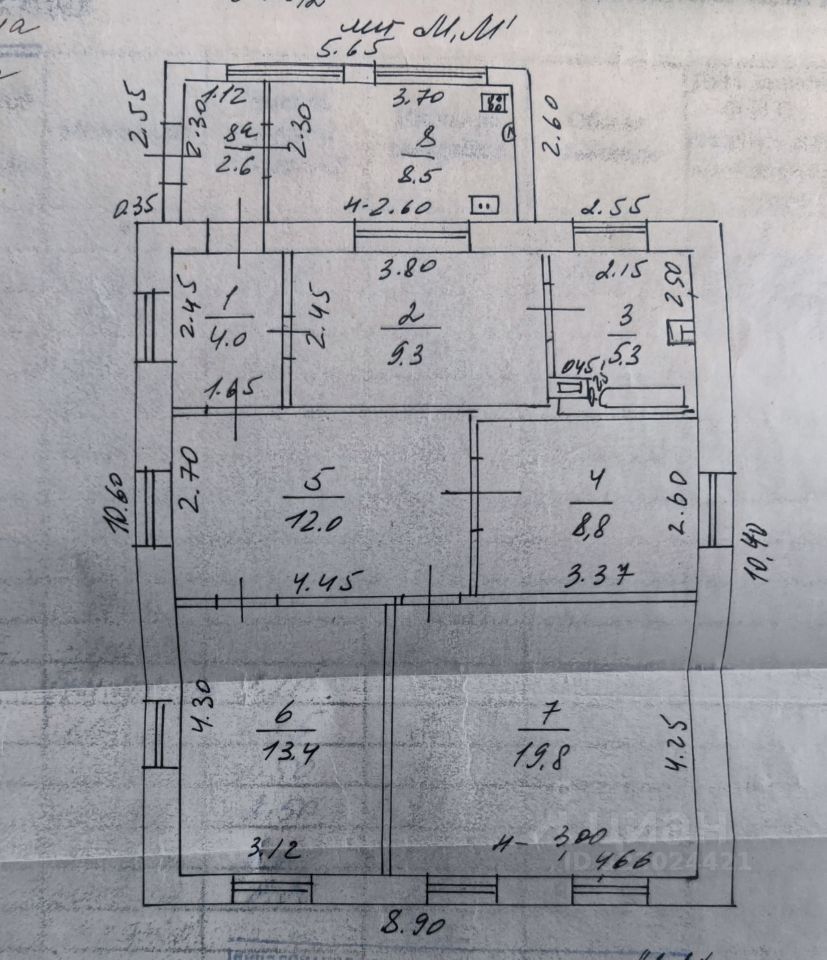 лит М, М'
5.65
1.12
3.70
2.55
2.30
8а
2.6
2.30
8
8.5
2.60
0.35
н-2.60
2.55
3.80
2.15
2.50
2.45
1
4.0
2.45
2
9.3
3
5.3
0.45
1.65
10.60
2.70
5
12.0
4
8,8
2.60
10,40
4.45
3.37
4.30
6
13.4
7
19,8
4.25
н- 3,00
3.12
4,66
8.90